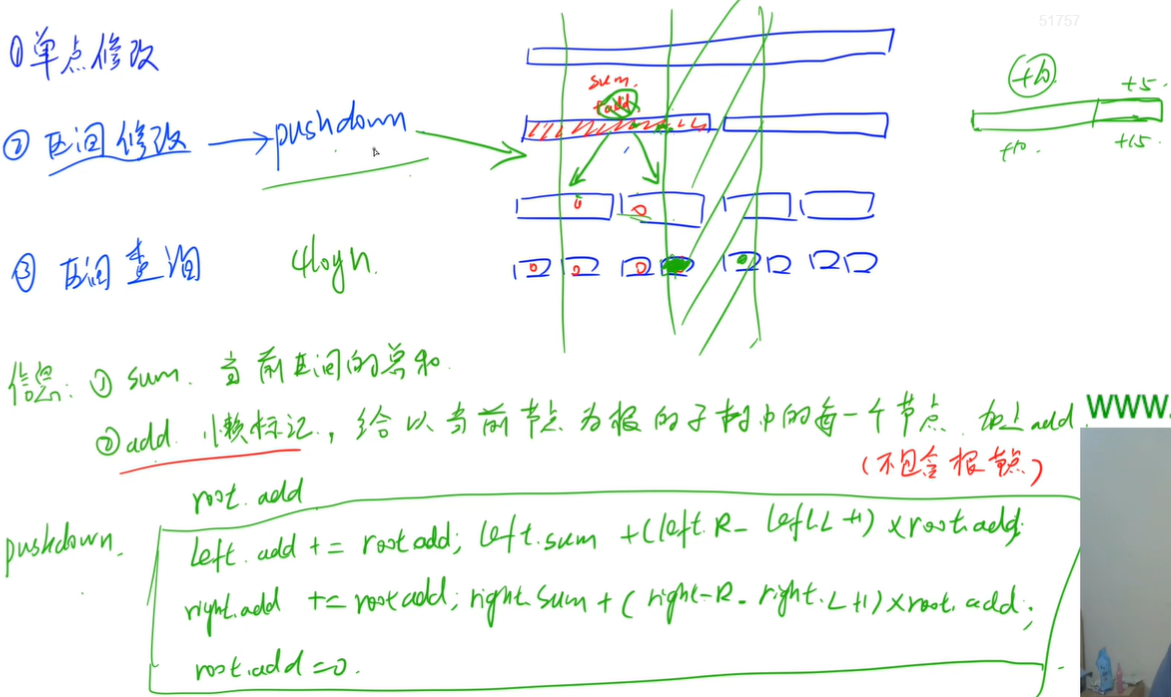 51757
①单点修改
②区间修改 → pushdown
③区间查询 4logn.
sum.
+add
+10
+5.
+10.
+15.
信息: ① sum. 当前区间的总和.
② add. 懒标记, 给以当前节点为根的子树中的每一个节点 加上 add.
(不包含根节点)
WWW.
root.add
pushdown.
left.add += root.add; left.sum +(left.R - left.L +1) × root.add;
right.add += root.add; right.sum + ( right-R - right.L +1) × root.add;
root.add =0.